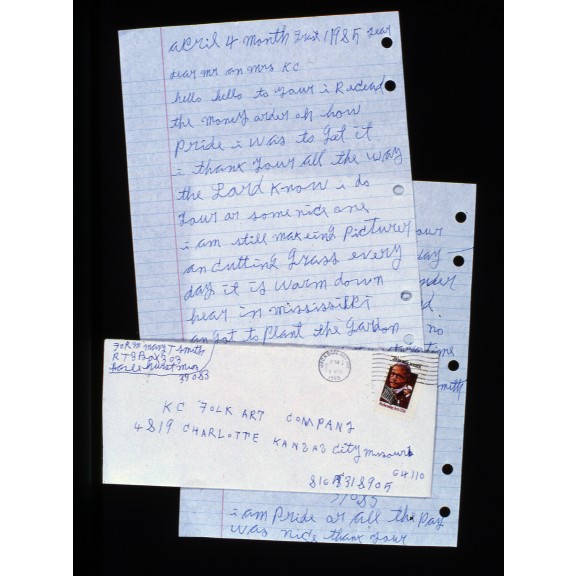 april 4 month First 1985 year
dear mr an mrs KC
hello hello to your i Recead
the money order oh how
Pride i was to get it
i thank your all the way
the Lord Know i do
your or some nice one
i am still makeing Pictures
an cutting grass every
day it is warm down
hear in mississippi
an got to plant the gardon
our
day
nder
no
time
smith
From mary T Smith
RT 3 Box 303
Hazlehurst miss
39083
KC FOLK ART COMPANY
4819 CHARLOTTE KANSAS City missouri
64110
816 5318905
39083
i am Pride or all the Pay
was nice thank your